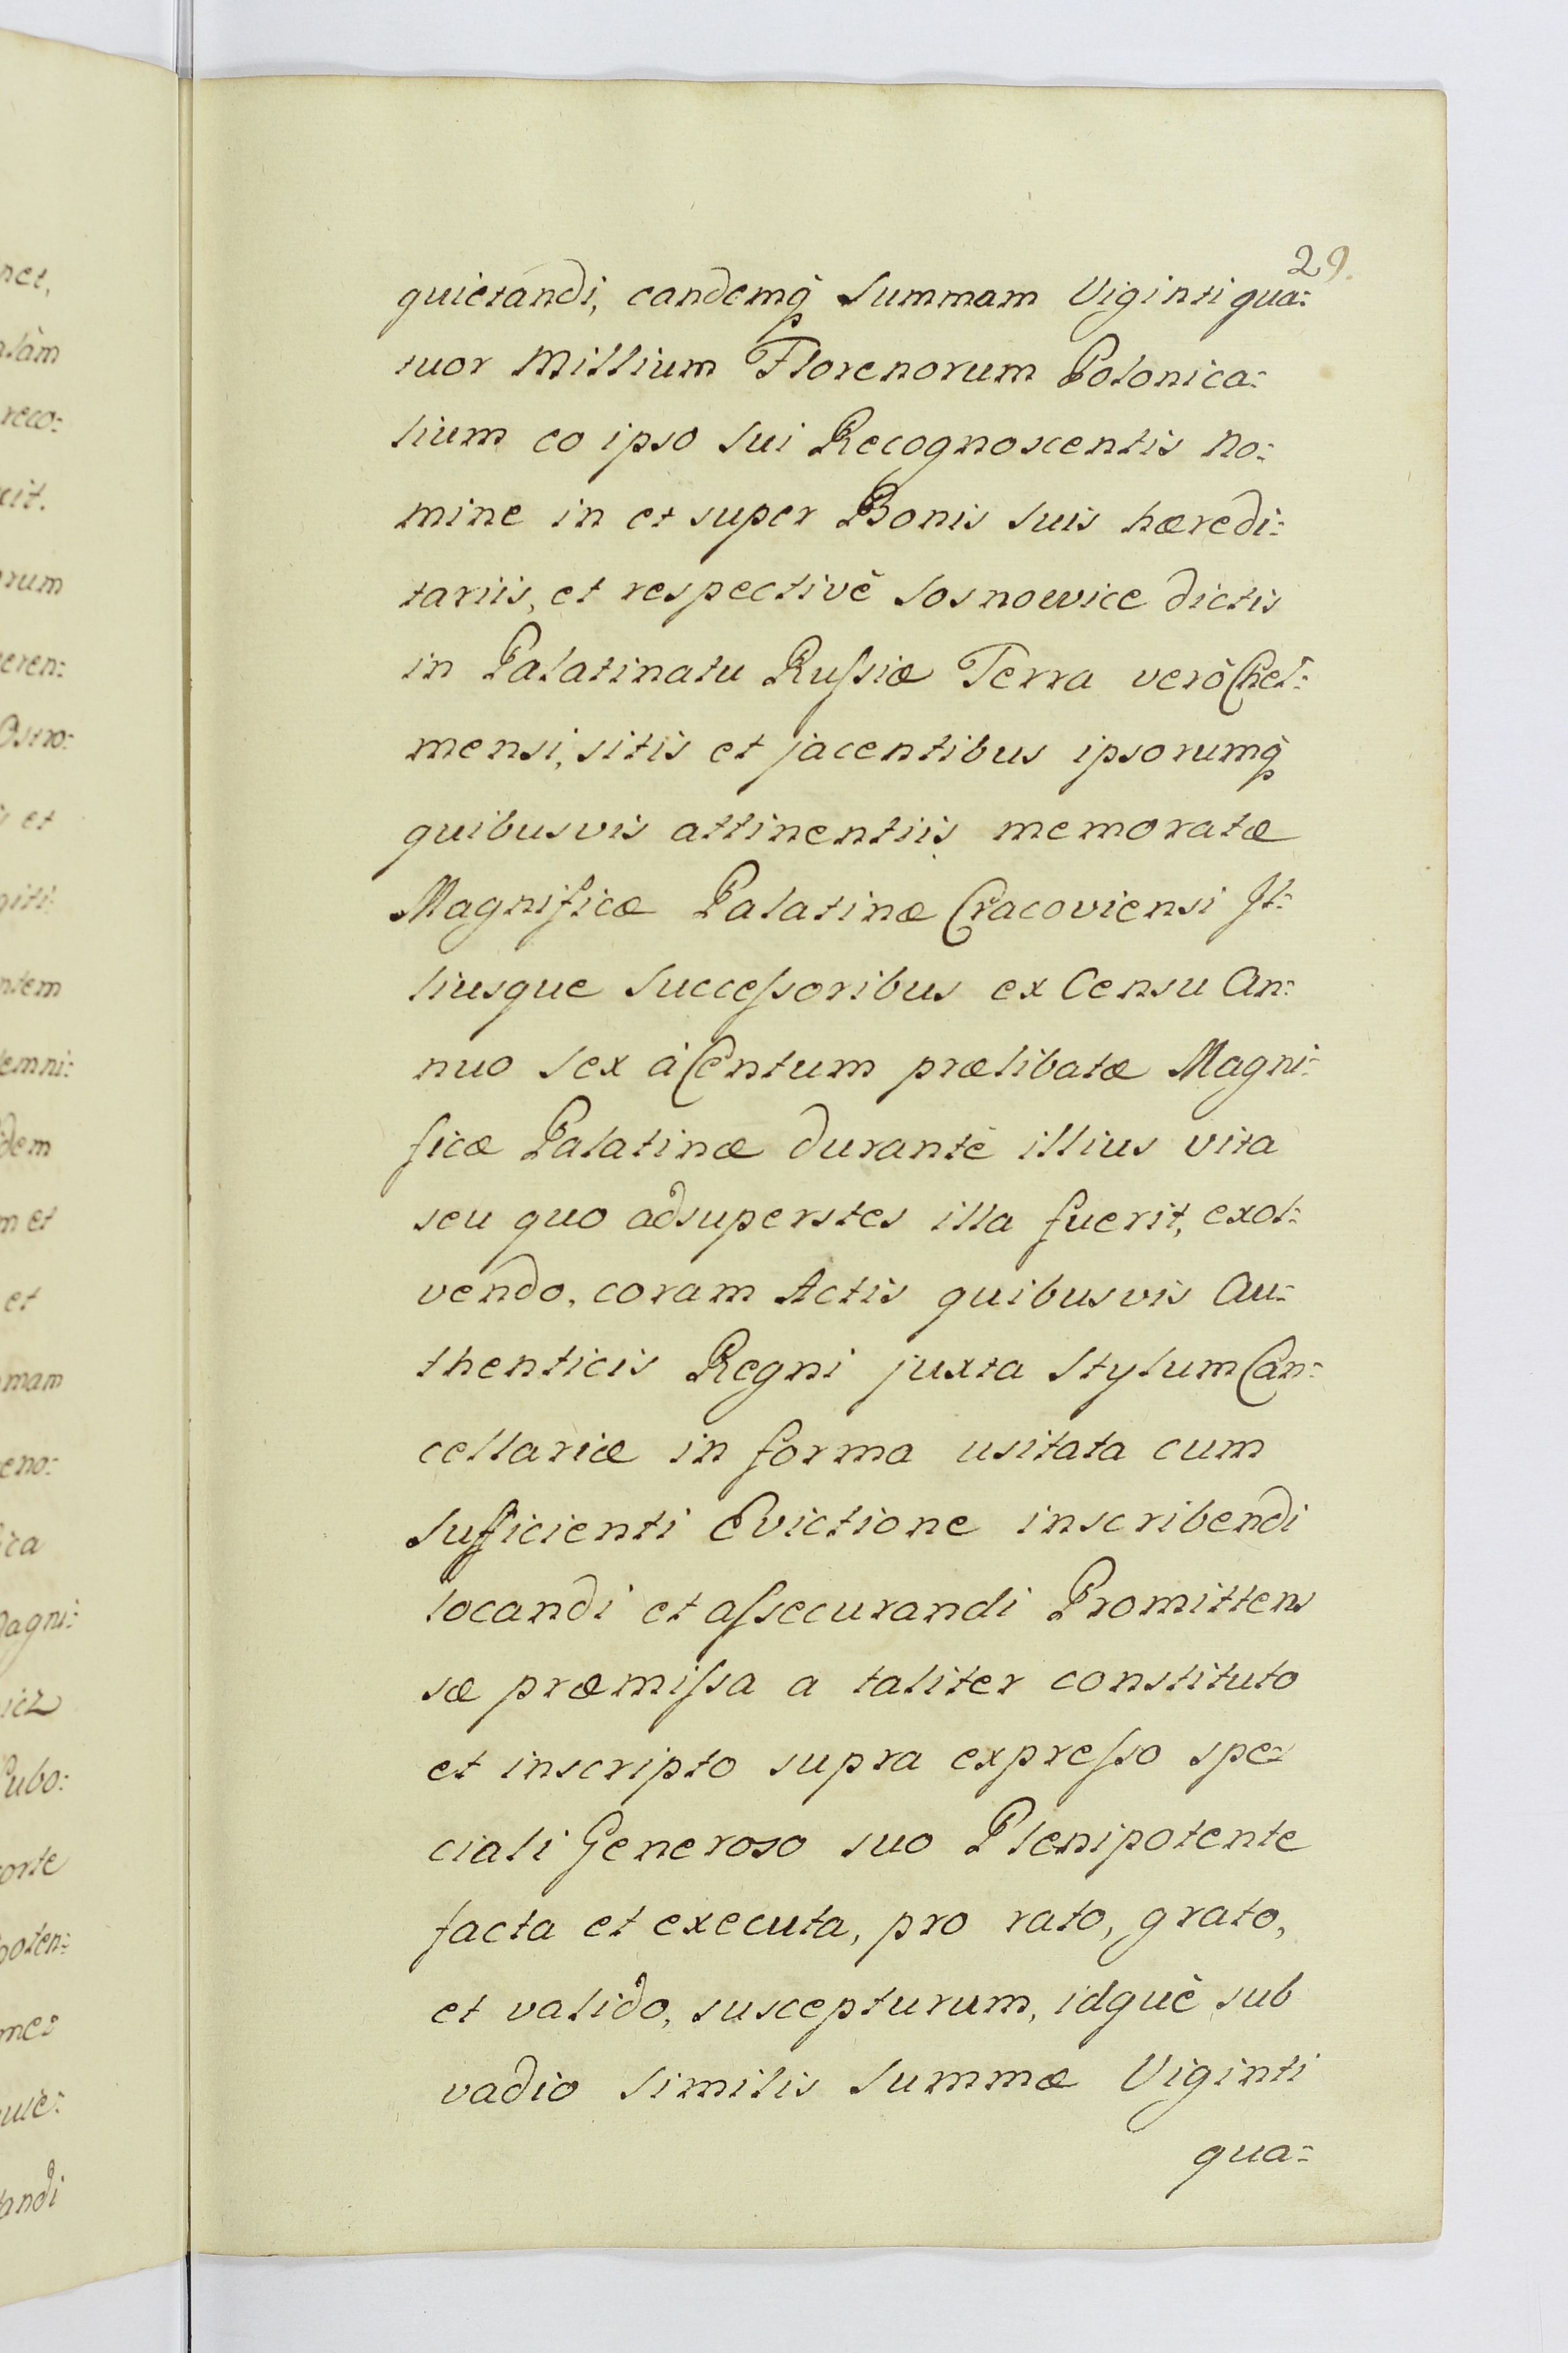 29.
quietandi, eandemq̀ Summam Viginti qua:
tuor Millium Florenorum Polonica:
lium eo ipso sui Recognoscentis no:
mine in et super Bonis suis hæredi:
tariis, et respectivè Sosnowice dictis
in Palatinatu Rußiæ Terra verò Chel:
mensi, sitis et jacentibus ipsorumq̀
quibusvis attinentiis memoratæ
Magnificæ Palatinæ Cracoviensi Il:
liusque Succeßoribus ex Censu An:
nuo Sex à Centum prælibatæ Magni:
ficæ Palatinæ durantè illius vita
seu quo adsuperstes illa fuerit, exol:
vendo, coram Actis quibusvis Au:
thenticis Regni juxta Stylum Can:
cellariæ in forma usitata cum
Sufficienti Evictione inscribendi
locandi et aßecurandi Promittens
sæ præmißa a taliter constituto
et inscripto supra expreßo spe:
ciali Generoso suo Plenipotente
facta et executa, pro rato, grato,
et valido, suscepturum, idquè sub
vadio Similis Summæ Viginti
qua: